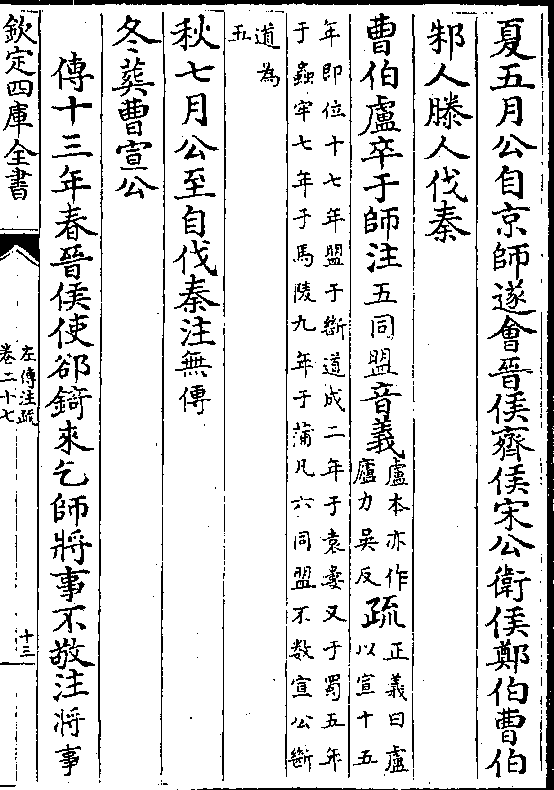 夏五月公自京師遂會晉侯齊侯宋公衛侯鄭伯曹伯
邾人滕人伐秦
曹伯盧卒于師注五同盟音義盧本亦作廬力吳反疏正義曰盧以宣十五
年即位十七年盟于斷道成二年于袁婁又于蜀五年
于蟲牢七年于馬陵九年于蒲凡六同盟不數宣公斷
道為五
秋七月公至自伐秦注無傳
冬葬曹宣公
傳十三年春晉侯使郤錡來乞師將事不敬注將事
欽定四庫全書
左傳注疏
卷二十七
十三